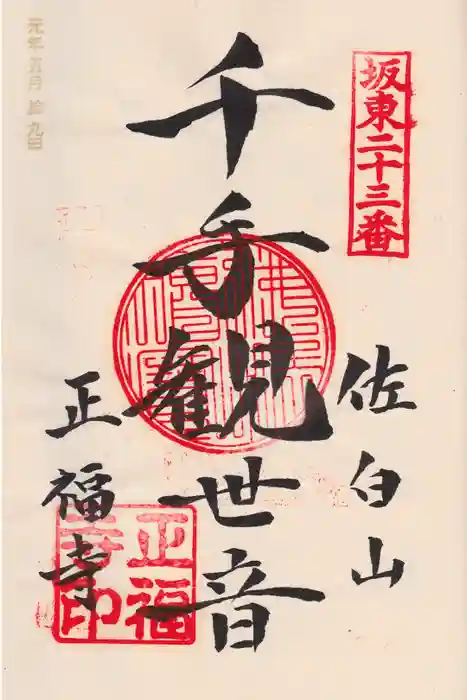 坂東二十三番
佐白山
千手観世音
正福寺
正福
寺印
元年五月拾九日